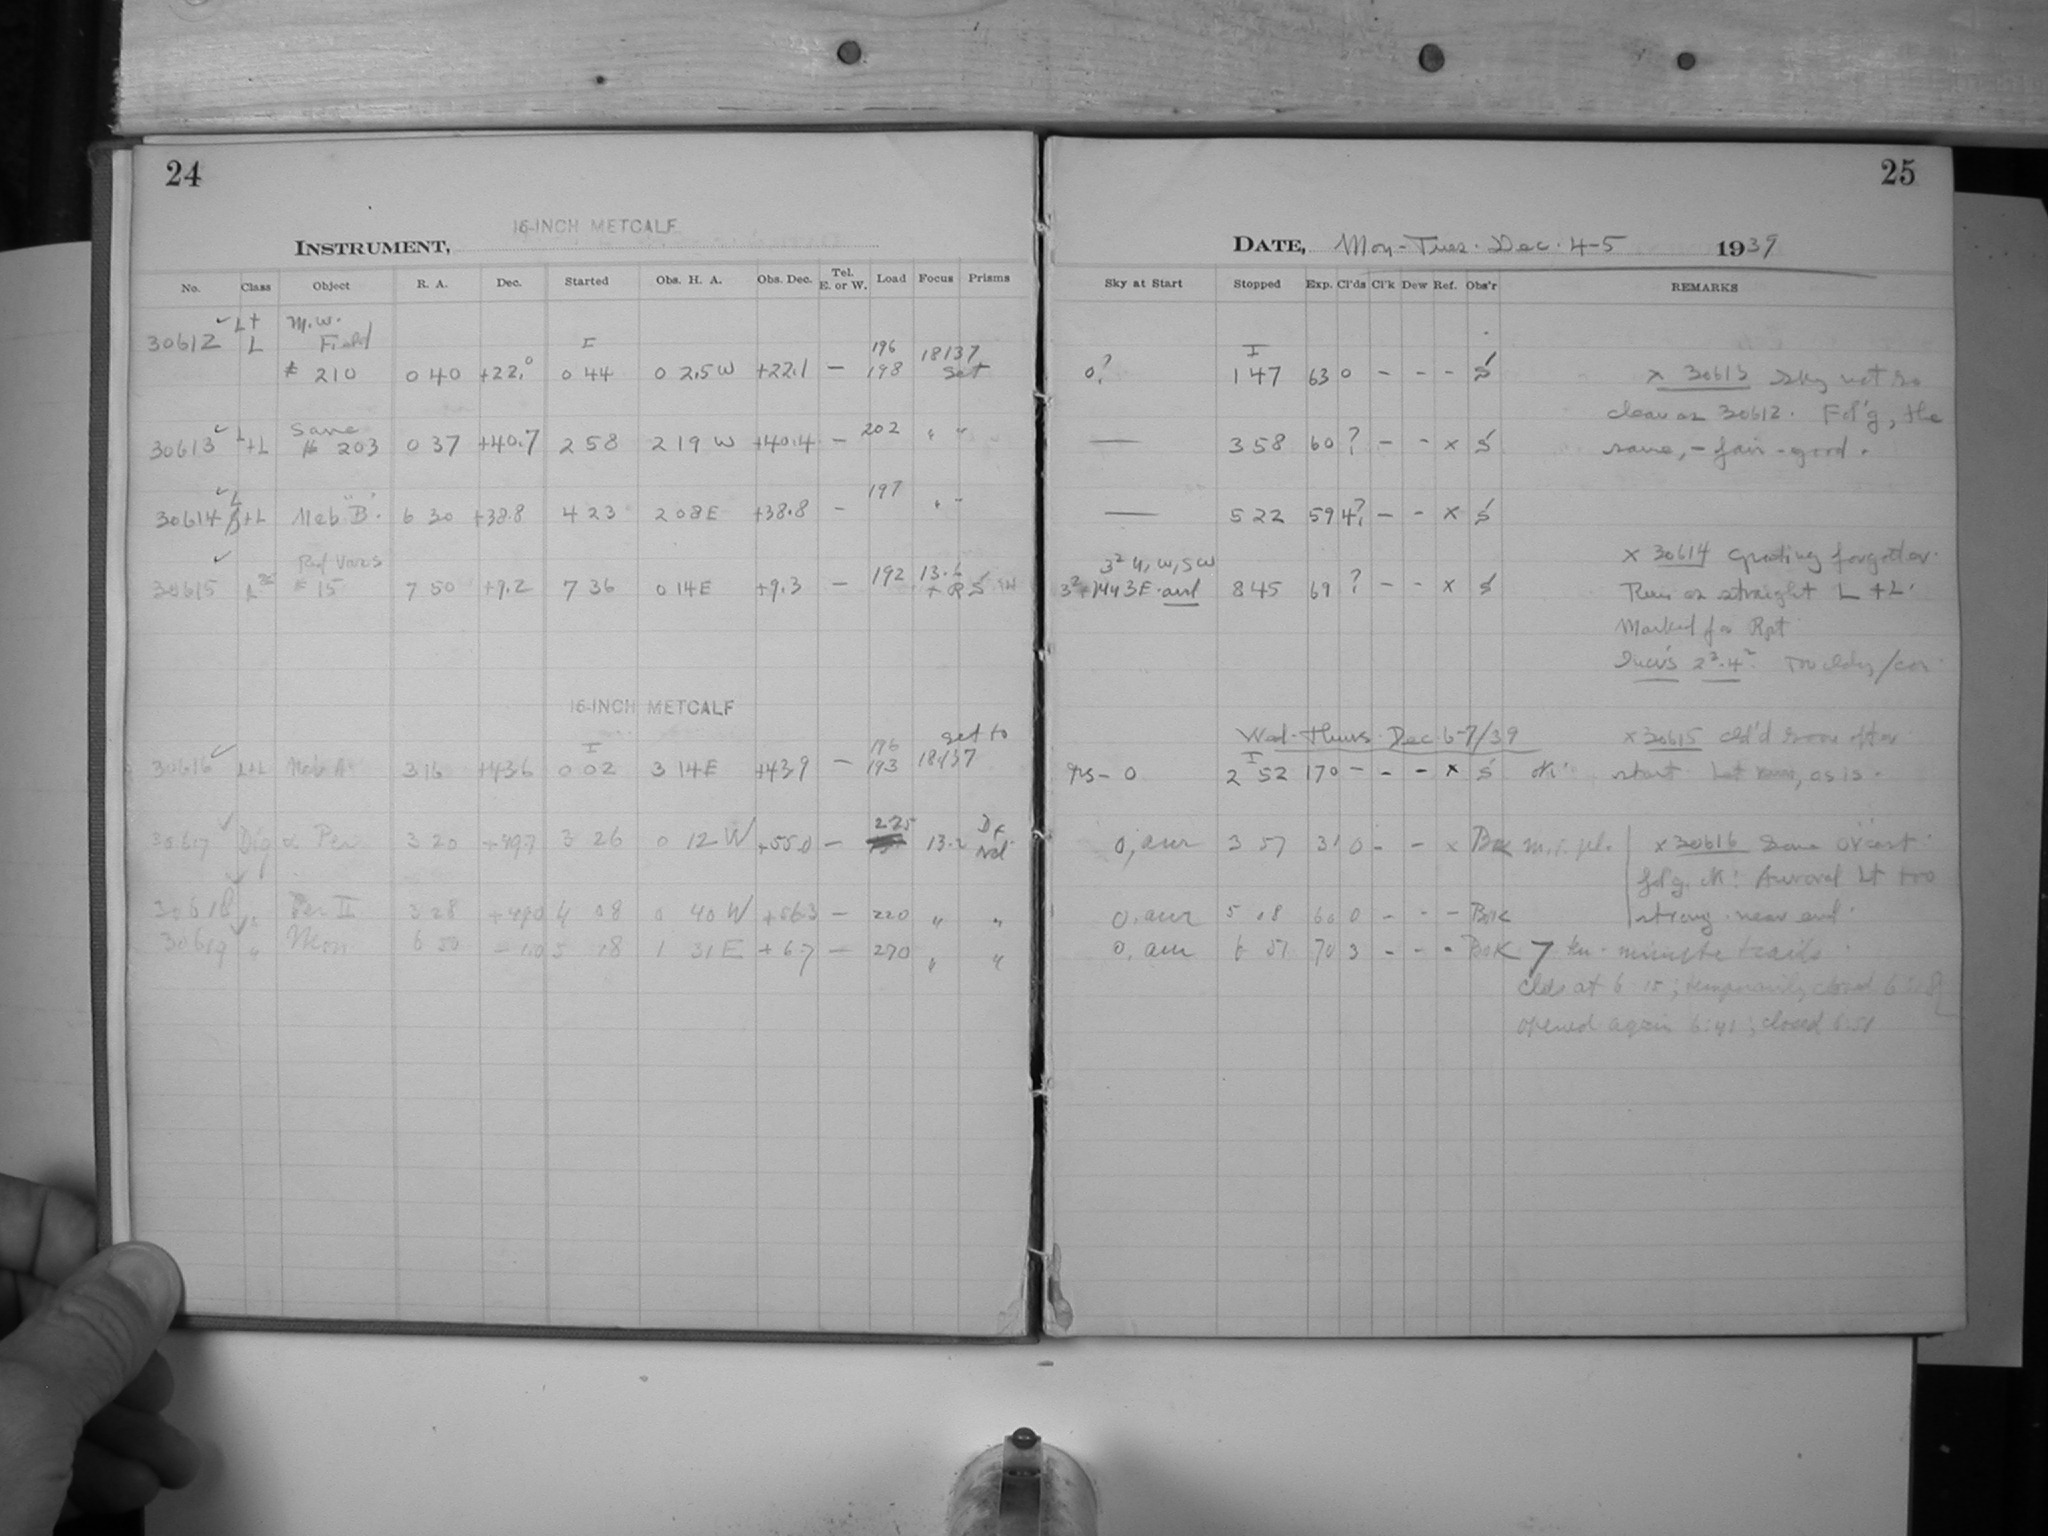 24
16-INCH METCALF
INSTRUMENT,
No. Class Object R. A. Dec. Started Obs. H. A. Obs. Dec. Tel. E. or W. Load Focus Prisms
L+ M.W.
30612 L Field I 196 18137
# 210 0 40 +22.0 0 44 0 2.5 W +22.1 — 198 set
30613 L+L Same # 203 0 37 +40.7 2 58 2 19 W +40.4 — 202 " "
30614 L+L Neb "B" 6 30 +38.8 4 23 2 08 E +38.8 — 197 " "
30615 Vars # 15 7 50 +9.2 7 36 0 14 E +9.3 — 192 13.6
16-INCH METCALF
set to
30616 L+L Neb A 3 16 +43.6 0 02 3 14 E +43.9 — 196 193 18137
30617 Dig α Per 3 20 +49.7 3 26 0 12 W +55.0 — 225 13.2
30618 " Per II 3 28 +49.0 4 08 0 40 W +56.3 — 220 " "
30619 " Mon 6 50 5 18 1 31 E +6.7 — 270 " "
25
DATE, Mon - Tues. Dec. 4-5 1939
Sky at Start Stopped Exp. Cl'ds Cl'k Dew Ref. Obs'r REMARKS
I
0? 1 47 63 0 - - - S x 30613 Sky not so
clear as 30612. Fd'g, the
— 3 58 60 ? - - x S same, - fair - good.
— 5 22 59 4? - - x S
x 30614 Grating forgotten.
8 45 69 ? - - x S Run as straight L + L.
Marked for Rpt
Wed - Thurs. Dec 6-7/39 x 30615 cld'd soon after
I
0 2 52 170 - - - x S ok start Let run, as is.
0, aur 3 57 31 0 - - x Bok x 30616 Some
fdg. ok! Auroral Lt too
0. aur 5 18 60 0 - - - Bok strong near end.
0. aur 6 51 70 3 - - - Bok 7 minute trails
clds at 6 15; temporarily closed
opened again 6:41; closed 6:51